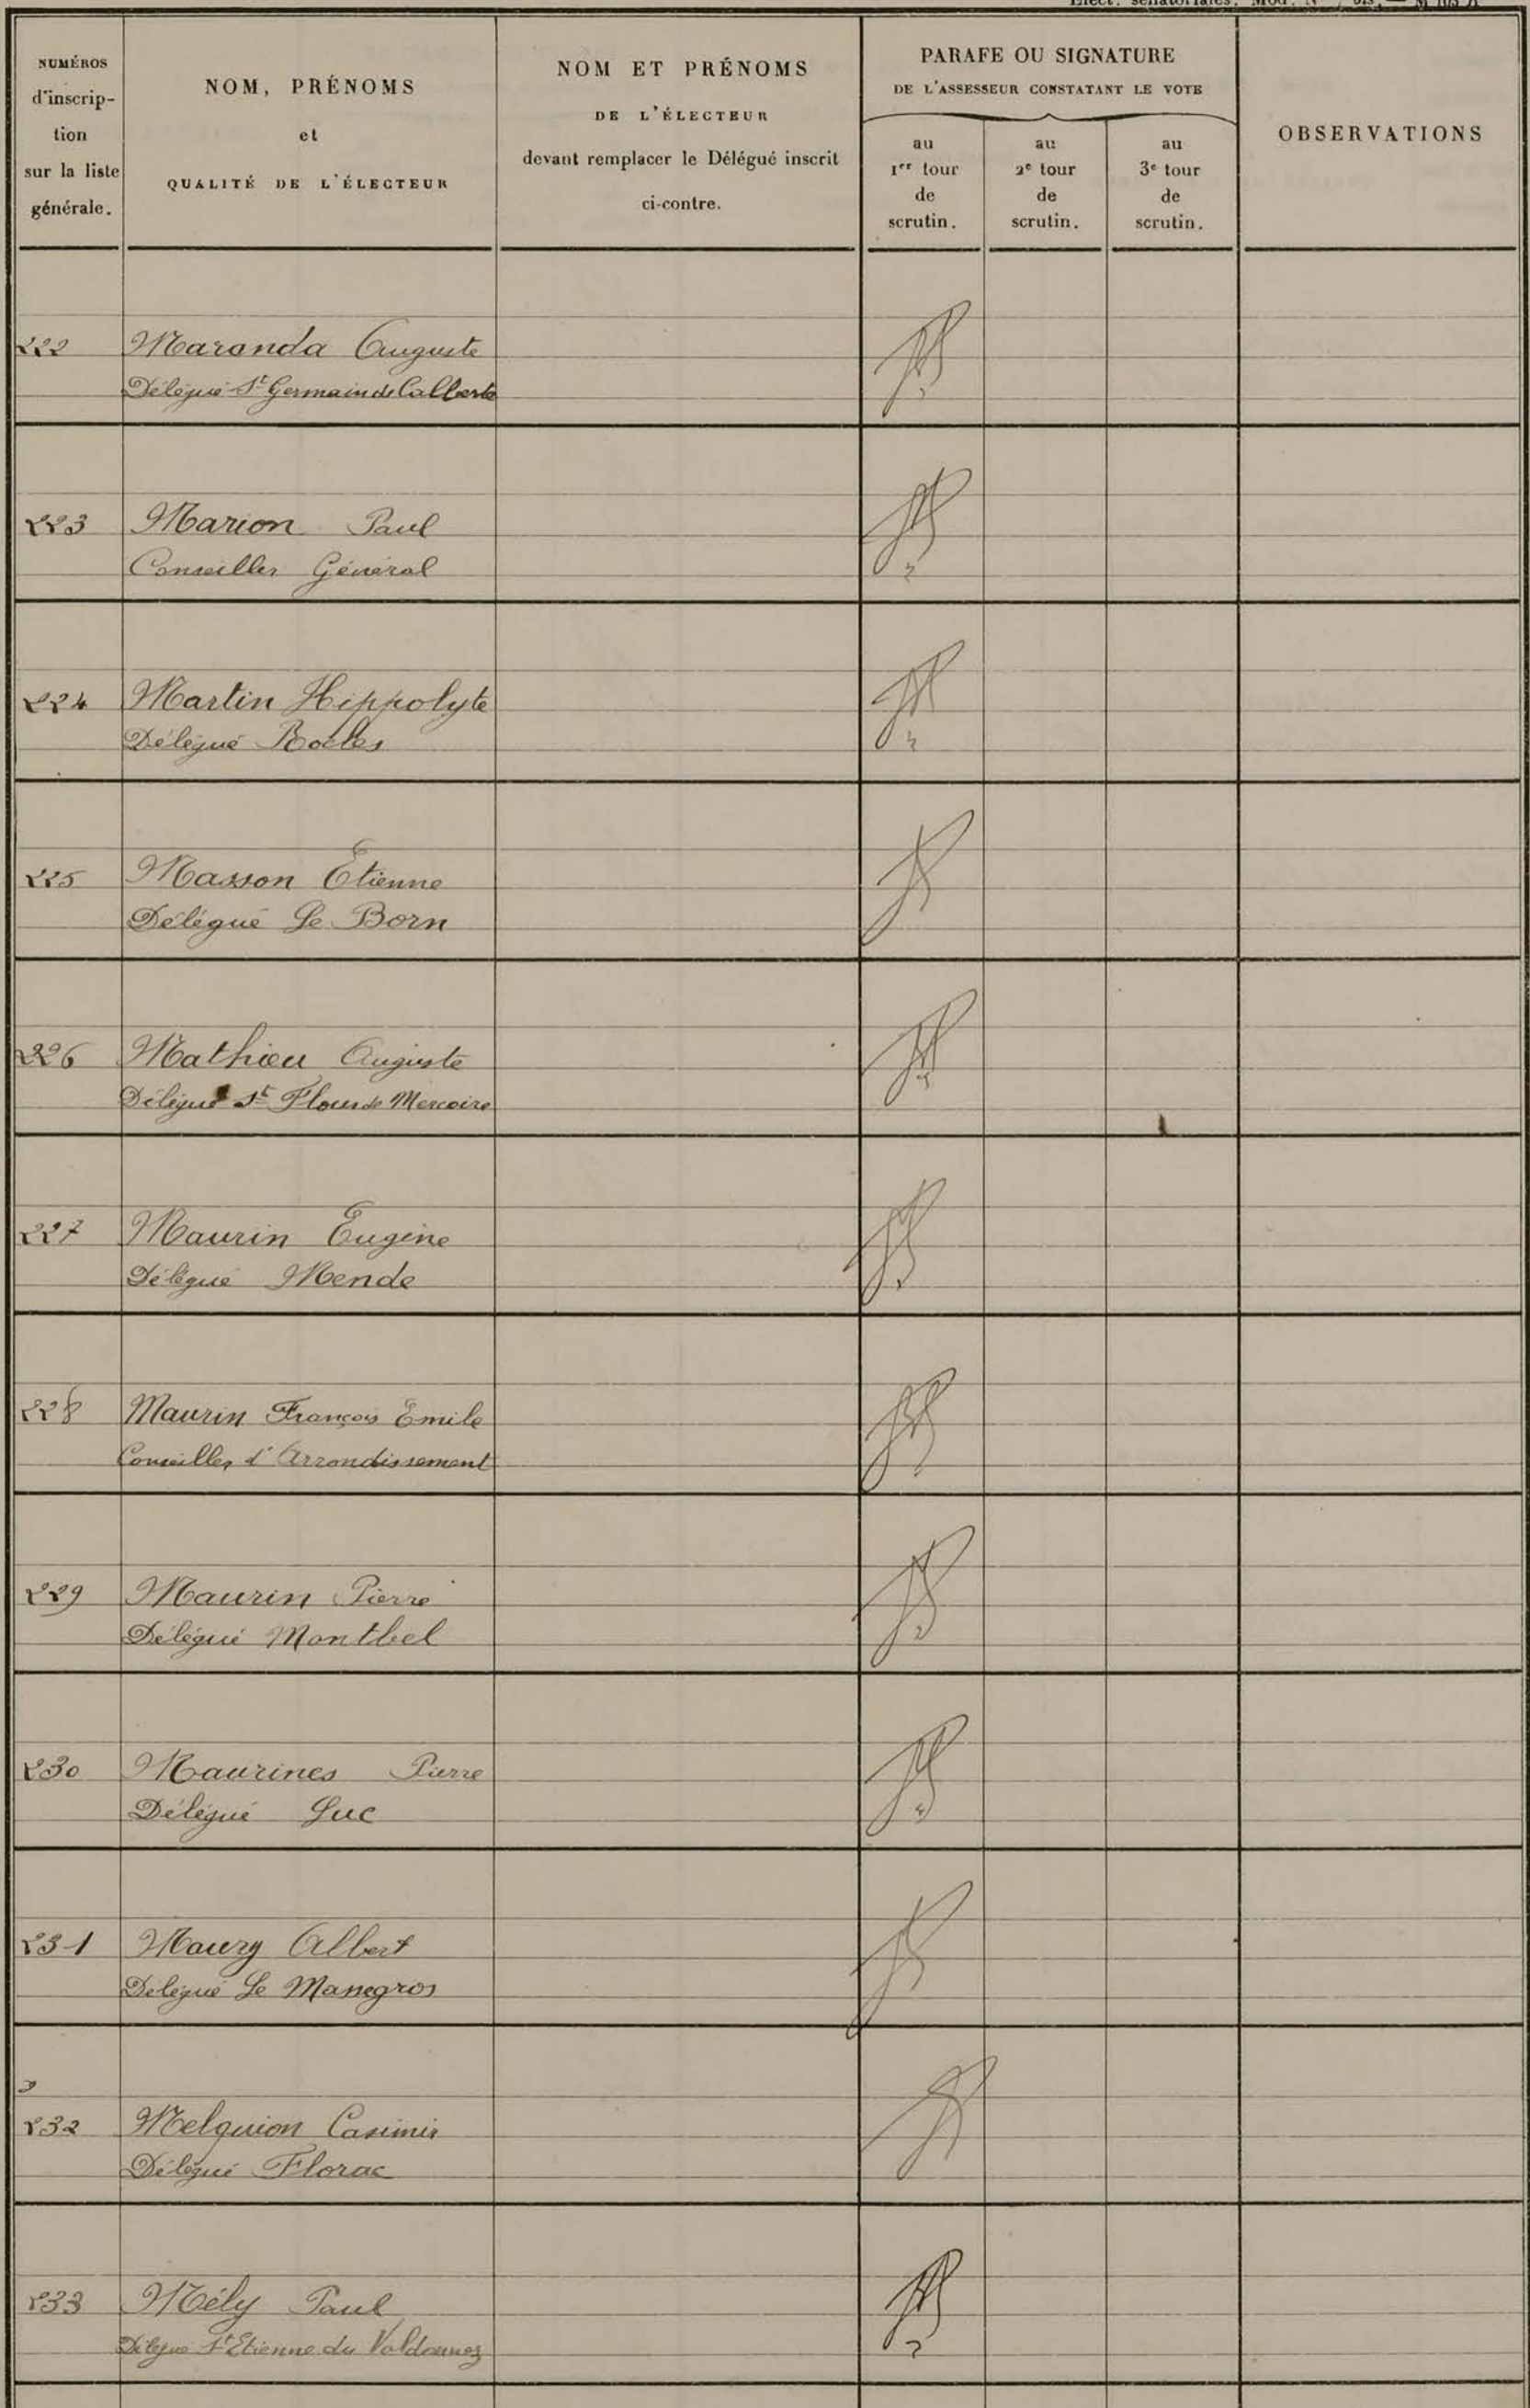 Elect. sénatoriales. Mod. N° 7 bis. — M 103 A
NUMÉROS
d'inscrip-
tion
sur la liste
générale.
NOM, PRÉNOMS
et
QUALITÉ DE L'ÉLECTEUR
NOM ET PRÉNOMS
DE L'ÉLECTEUR
devant remplacer le Délégué inscrit
ci-contre.
PARAFE OU SIGNATURE
DE L'ASSESSEUR CONSTATANT LE VOTE
au
1er tour
de
scrutin.
au
2e tour
de
scrutin.
au
3e tour
de
scrutin.
OBSERVATIONS
222 Maranda Auguste
Délégué St Germain de Calberte
223 Marion Paul
Conseiller Général
224 Martin Hippolyte
Délégué Rocles
225 Masson Etienne
Délégué Le Born
226 Mathieu Auguste
Délégué St Flour de Mercoire
227 Maurin Eugène
Délégué Mende
228 Maurin François Emile
Conseiller d'Arrondissement
229 Maurin Pierre
Délégué Montbel
230 Maurines Pierre
Délégué Luc
231 Maury Albert
Délégué Le Masegros
232 Melquion Casimir
Délégué Florac
233 Mély Paul
Délégué St Etienne du Valdonnez